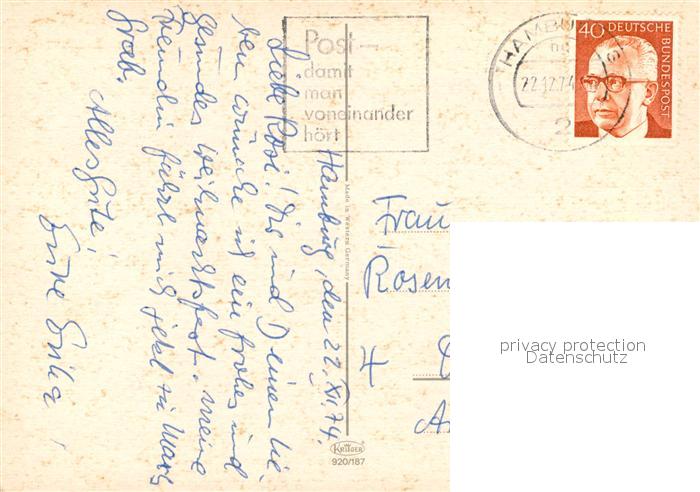 Hamburg, den 22. XII. 74.
Liebe Rosi! Dir und Deinen Lie-
ben wünsche ich ein frohes und
gesundes Weihnachtsfest. Meine
Freundin fährt mich jetzt zu
Grab.
Alles Gute!
Deine Erika!
Post –
damit
man
voneinander
hört
HAMBU
22.12.74
2
40 DEUTSCHE
BUNDESPOST
Made in Western Germany
Frau
Rosen
4
KRÜGER
920/187
privacy protection
Datenschutz